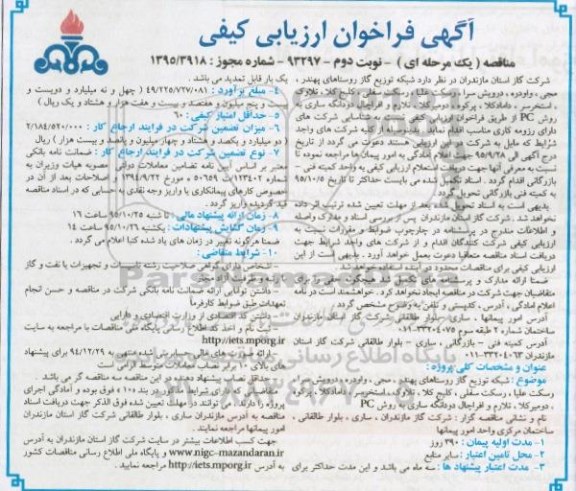 آگهی فراخوان ارزیابی کیفی
مناقصه ( یک مرحله ای ) - نوبت دوم - ۹۳۲۹۷ - شماره مجوز : ۱۳۹۵/۳۹۱۸
شرکت گاز استان مازندران در نظر دارد شبکه توزیع گاز روستاهای پهندر ،
مجی ، واودره ، درویش سرا ، رسکت علیا ، رسکت سفلی ، کلیج کلا ، تلاوک
، استخرسر ، دادکلا ، پرکوه ، دومیرکلا ، تلارم و افراچال دودانگه ساری به
روش PC از طریق فراخوان ارزیابی کیفی نسبت به شناسایی شرکت های
دارای رزومه کاری مناسب اقدام نماید. بدینوسیله از کلیه شرکت های واجد
شرایط که مایل به شرکت در ارزیابی هستند دعوت می گردد از تاریخ
درج آگهی الی ۹۵/۹/۲۸ جهت اعلام آمادگی به امور پیمان‌ها مراجعه نموده تا
نسبت به معرفی آنها جهت دریافت استعلام ارزیابی کیفی به واحد کمیته فنی –
بازرگانی اقدام گردد . اسناد تکمیل شده می بایست حداکثر تا تاریخ ۹۵/۱۰/۵
به کمیته فنی بازرگانی تحویل گردد .
بدیهی است به اسناد تحویل شده بعد از مهلت تعیین شده ترتیب اثر داده
نخواهد شد . شرکت گاز استان مازندران پس از بررسی اسناد و مدارک واصله
و اطلاعات مندرج در پرسشنامه در چارچوب ضوابط و مقررات نسبت به
ارزیابی کیفی شرکت کنندگان اقدام و از شرکت های واجد شرایط جهت
دریافت اسناد مناقصه متعاقبا دعوت بعمل خواهد آورد . بدیهی است از این
ارزیابی کیفی برای مناقصات محدود در آینده استفاده خواهد شد .
ضمنا ارائه مدارک و پرسشنامه های تکمیل شد هیچگونه حقی برای
متقاضیان جهت شرکت در مناقصه ایجاد نخواهد کرد . خواهشمند است در نامه
اعلام آمادگی ، آدرس ، کدپستی و تلفن به وضوح مشخص گردد .
آدرس امور پیمانها : ساری – بلوار طالقانی شرکت گاز استان مازندران
ساختمان شماره ۲ طبقه سوم ۳۳۲۰۴۰۷۵-۰۱۱
آدرس کمیته فنی – بازرگانی ، ساری – بلوار طالقانی شرکت گاز استان
مازندران ۳۳۲۰۴۰۶۳-۰۱۱
عنوان و مشخصات کلی پروژه :
موضوع : شبکه توزیع گاز روستاهای پهندر ، مجی ، واودره ، درویش سرا ،
رسکت علیا ، رسکت سفلی ، کلیج کلا ، تلاوک ، استخرسر ، دادکلا ، پرکوه
، دومیرکلا ، تلارم و افراچال دودانگه ساری به روش PC
نام و نشانی مناقصه گزار : شرکت گاز استان مازندران ، ساری ، بلوار طالقانی ،
ساختمان مرکزی واحد امور پیمانها
۱- مدت اولیه پیمان : ۳۹۰ روز
۲- محل تامین اعتبار : سایر منابع
۳- مدت اعتبار پیشنهاد ها : سه ماه می باشد و این مدت حداکثر برای
یک بار قابل تمدید می باشد .
۴- مبلغ برآورد : ۴۹/۲۲۵/۷۲۷/۰۸۱ ( چهل و نه میلیارد و دویست و
بیست و پنج میلیون و هفتصد و بیست و هفت هزار و هشتاد و یک ریال )
۵- حداقل امتیاز کیفی : ۶۰
۶- میزان تضمین شرکت در فرایند ارجاع کار : ۲/۱۸۴/۵۲۰/۰۰۰
( دو میلیارد و یکصد و هشتاد و چهار میلیون و پانصد و بیست هزار ) ریال
۷- نوع تضمین شرکت در فرایند ارجاع کار : ضمانت نامه بانکی
معتبر برابر آئین نامه تضامین معاملات دولتی مصوبه هیات وزیران به
شماره ۱۲۳۴۰۲/ت ۵۰۶۵۹ ه مورخ ۱۳۹۴/۹/۲۲ و اصلاحات بعد از آن در
خصوص کارهای پیمانکاری یا واریز وجه نقدی به حسابی که در اسناد مناقصه
قید گردیده واریز گردد .
۸- زمان ارائه پیشنهاد مالی : تا شنبه ۹۵/۱۰/۲۵ ساعت ۱۶
۹- زمان گشایش پیشنهادات : یکشنبه ۹۵/۱۰/۲۶ ساعت ۱۴
ضمنا هرگونه تغییر در زمان های یاد شده کتبا اعلام می گردد .
۱۰- شرایط متقاضی :
- داشتن توانایی ارائه ضمانت نامه بانکی شرکت در مناقصه و حسن انجام
تعهدات طبق ضوابط کارفرما
- داشتن کد اقتصادی از وزارت اقتصادی و دارایی
- ثبت نام و اخذ کد اطلاع رسانی پایگاه ملی مناقصات با مراجعه به سایت
http://iets.mporg.ir
- ارائه صورت های مالی حسابرسی شده منتهی به ۹۴/۱۲/۲۹ برای پیشنهاد
های بالای ۱۰ برابر نصاب معاملات متوسط الزامی است
- حداقل تعداد پیشنهاد دهنده در این مناقصه سه مناقصه گر می باشد .
پروژه را دارند، می توانند در مهلت تعیین شده فوق الذکر جهت دریافت اسناد
مناقصه به آدرس شرکت گاز استان مازندران ساری ، بلوار طالقانی ،
امور پیمانها مراجعه نمایند .
جهت کسب اطلاعات بیشتر در سایت شرکت گاز استان مازندران به آدرس
www.nigc-mazandaran.ir و پایگاه ملی اطلاع رسانی مناقصات کشور
به آدرس http://iets.mporg.ir مراجعه نمایید .